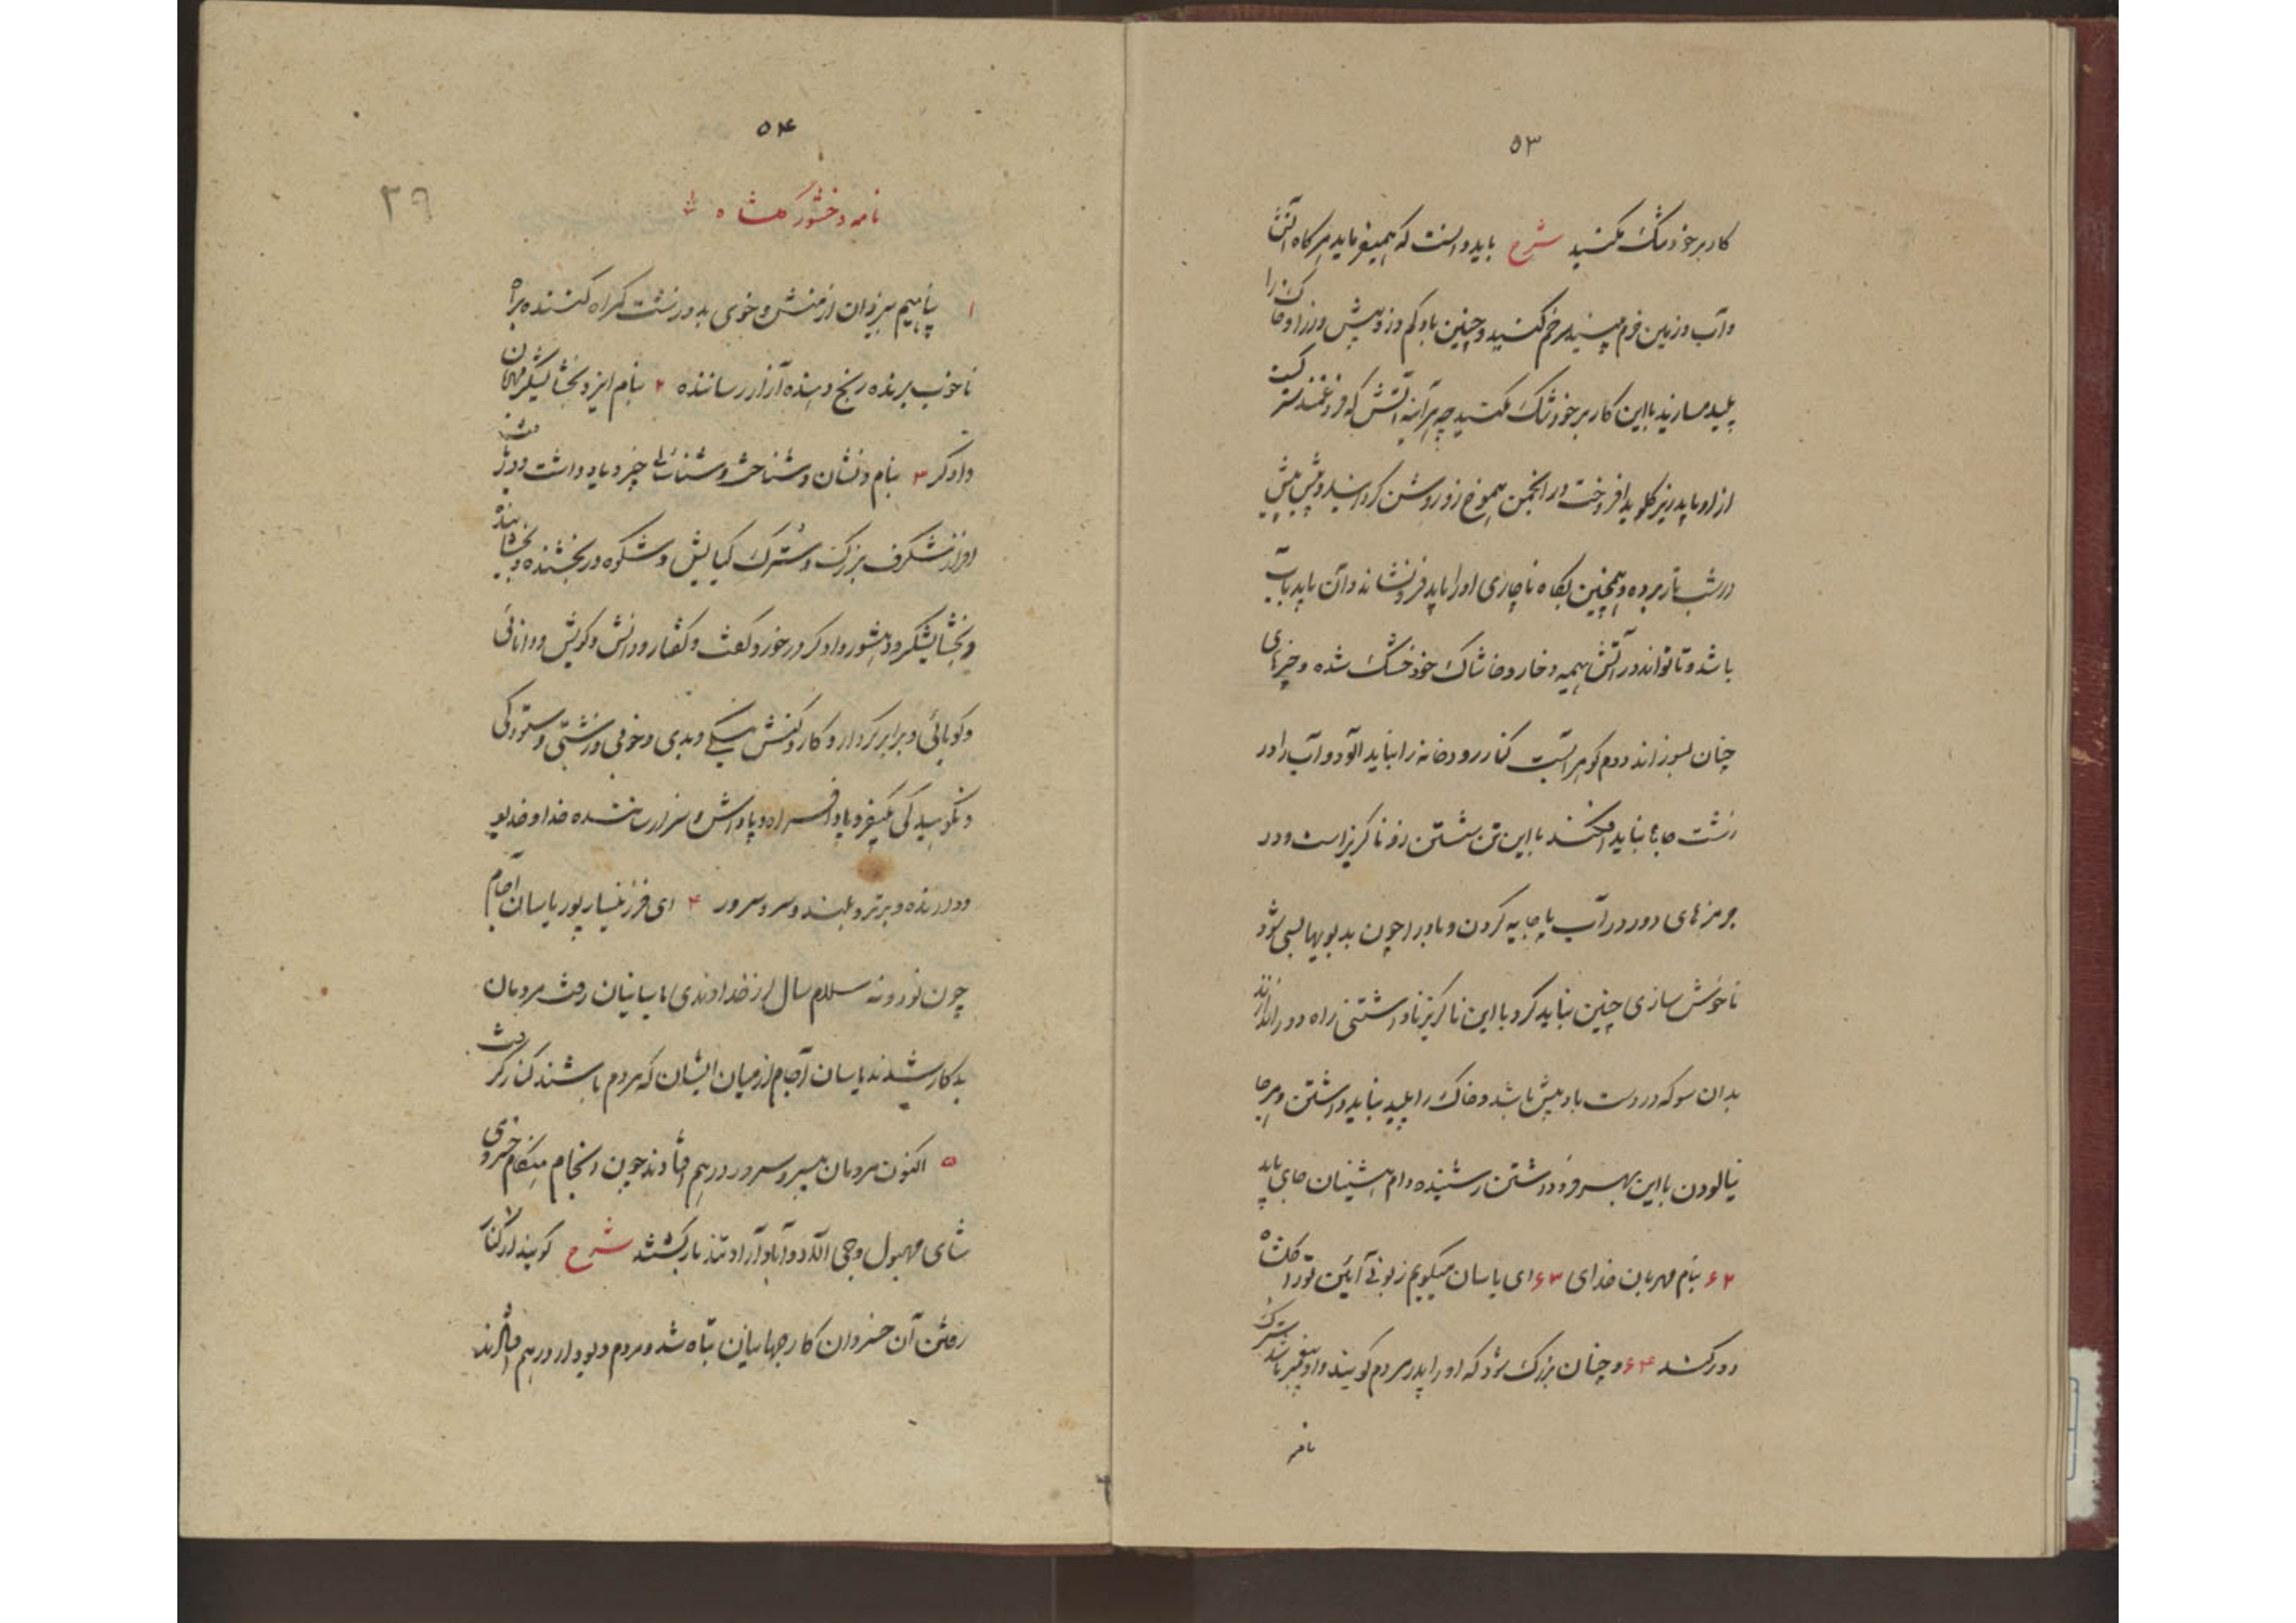 ۵۳
کار بر خود تنگ مکنید شرح باید دانست که همیفرماید هر گاه آتش
و آب و زمین خرم بینید خم کنید و چنین باد کم وزد و بیش وزد و خاک را
پلید مسازید با این کار بر خود تنگ مکنید چه هر آینه آتش که فروغمندتر
از او باید زیر گلو بد افروخت در انجمن هموغ زور روشن گردانید و پیش پیش
در شب تار برده و همچنین بگاه ناچاری او را باید فرو نشاند و آن باید بآب
باشد و تا تواند در آتش هیمه و خار و خاشاک خود خشک شده و چیزهای
چنان بسوزاند دوم گوهر آبست کنار رودخانه را نباید آلود و آب را در
زشت جاها نباید افکند با این تن شستن زو ناگریز است و در
جرمزهای دور در آب پا جابه کردن و باد را چون بد بویها بسی شود
ناخوش سازی چنین نباید کرد با این ناگریز ناداشتنی راه دور اندازند
بدان سو که در دست باد پیش باشد و خاک را پلید نباید داشتن و هر جا
نیالودن با این بهر فرود داشتن رسیده و ام پیشینان جای باید
۶۲ بنام مهربان خدای ۶۳ ای یاسان میگویم زبونی آیین تو را گلشاه
دور کند ۶۴ و چنان بزرگ شود که او را پدر مردم گویند و او پیغمبر باشد سترگ
نامه
۵۴
۲۹
نامه وخشور گلشاه
۱ پناهیم بیزدان از منش و خوی بد و زشت گمراه کننده براه
ناخوب برنده رنج دهنده آزار رساننده ۲ بنام ایزد بخشایشگر مهربان
دادگر ۳ بنام و نشان و شناخت و شناسائی چفر و یادداشت و دریافت
اورنگ شگرف بزرگ و سترگ کیایش و شکوه در بخشنده و بخشاینده
و بخشایشگر و دهشور و دادگر در خورد گفت و گفتار و دانش و گویش و دانائی
و گویائی و برابر کردار و کار و کنش نیکی و بدی و خوبی و زشتی و ستودگی
و نکوهیدگی کیفر و بادافراه و پاداش و سزا رسانیده خدا و خدیو
و دارنده و برتر و بلند و سر و سرور ۴ ای فرزینسار پور یاسان آجام
چون نود و نه سلام سال از خداوندی یاسانیان رفت مردمان
بد کار شدند یاسان آجام از میان ایشان که مردم باشند کنار گرفت
۵ اکنون مردمان بیسر و سرور در هم افتادند چون انجام هنگام خسروی
شای مهبول و جی الاد و آباد آراد تند بار گشتند شرح گویند از کنار
رفتن آن خسروان کار جهانیان تباه شد و مردم دیودار در هم افتادند